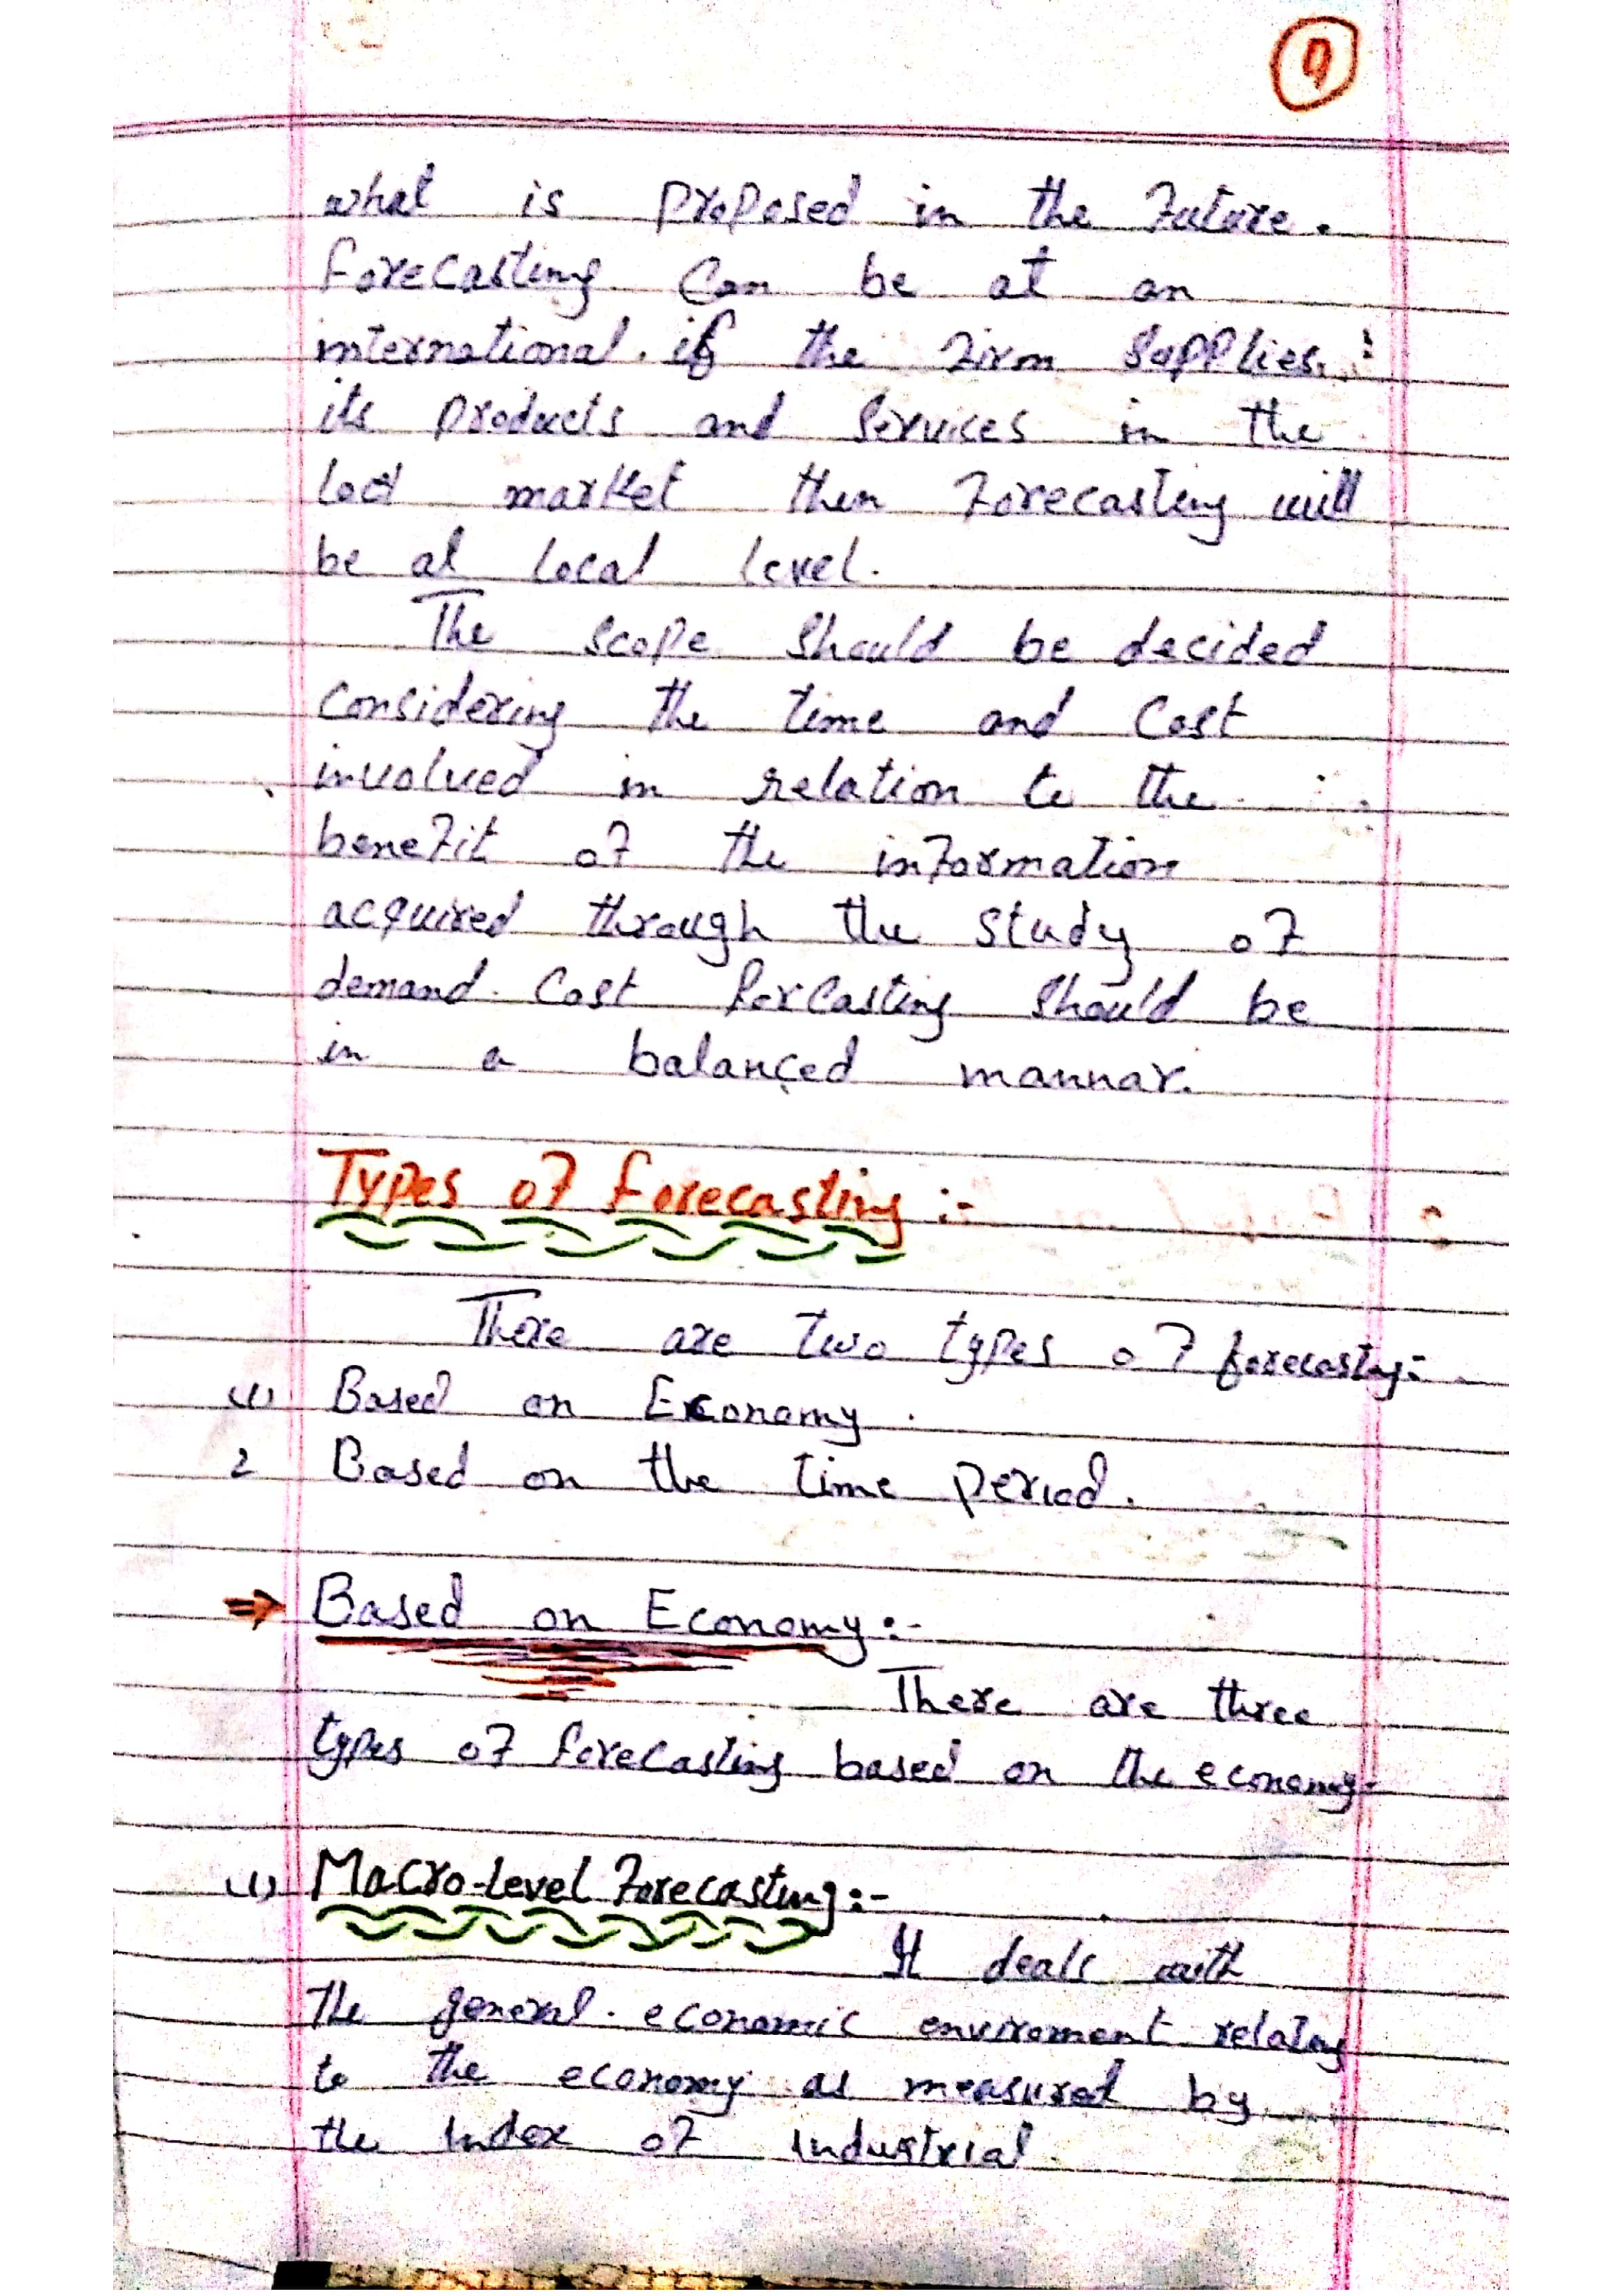 9
what is proposed in the future.
Forecasting Can be at an
international. if the firm Supplies.
its products and Services in the
locl market then forecasting will
be at local level.
The scope Should be decided
Considering the time and Cost
involved in relation to the
benefit of the information
acquired through the study of
demand. Cost forcasting Should be
in a balanced mannar.
Types of Forecasting :-
There are two types of forecasting:-
(1) Based on Economy.
2 Based on the time period.
⇒ Based on Economy :-
There are three
types of forecasting based on the economy.
(1) Macro-Level Forecasting :-
It deals with
The general. economic enviroment relating
to the economy as measured by
the Index of Industrial